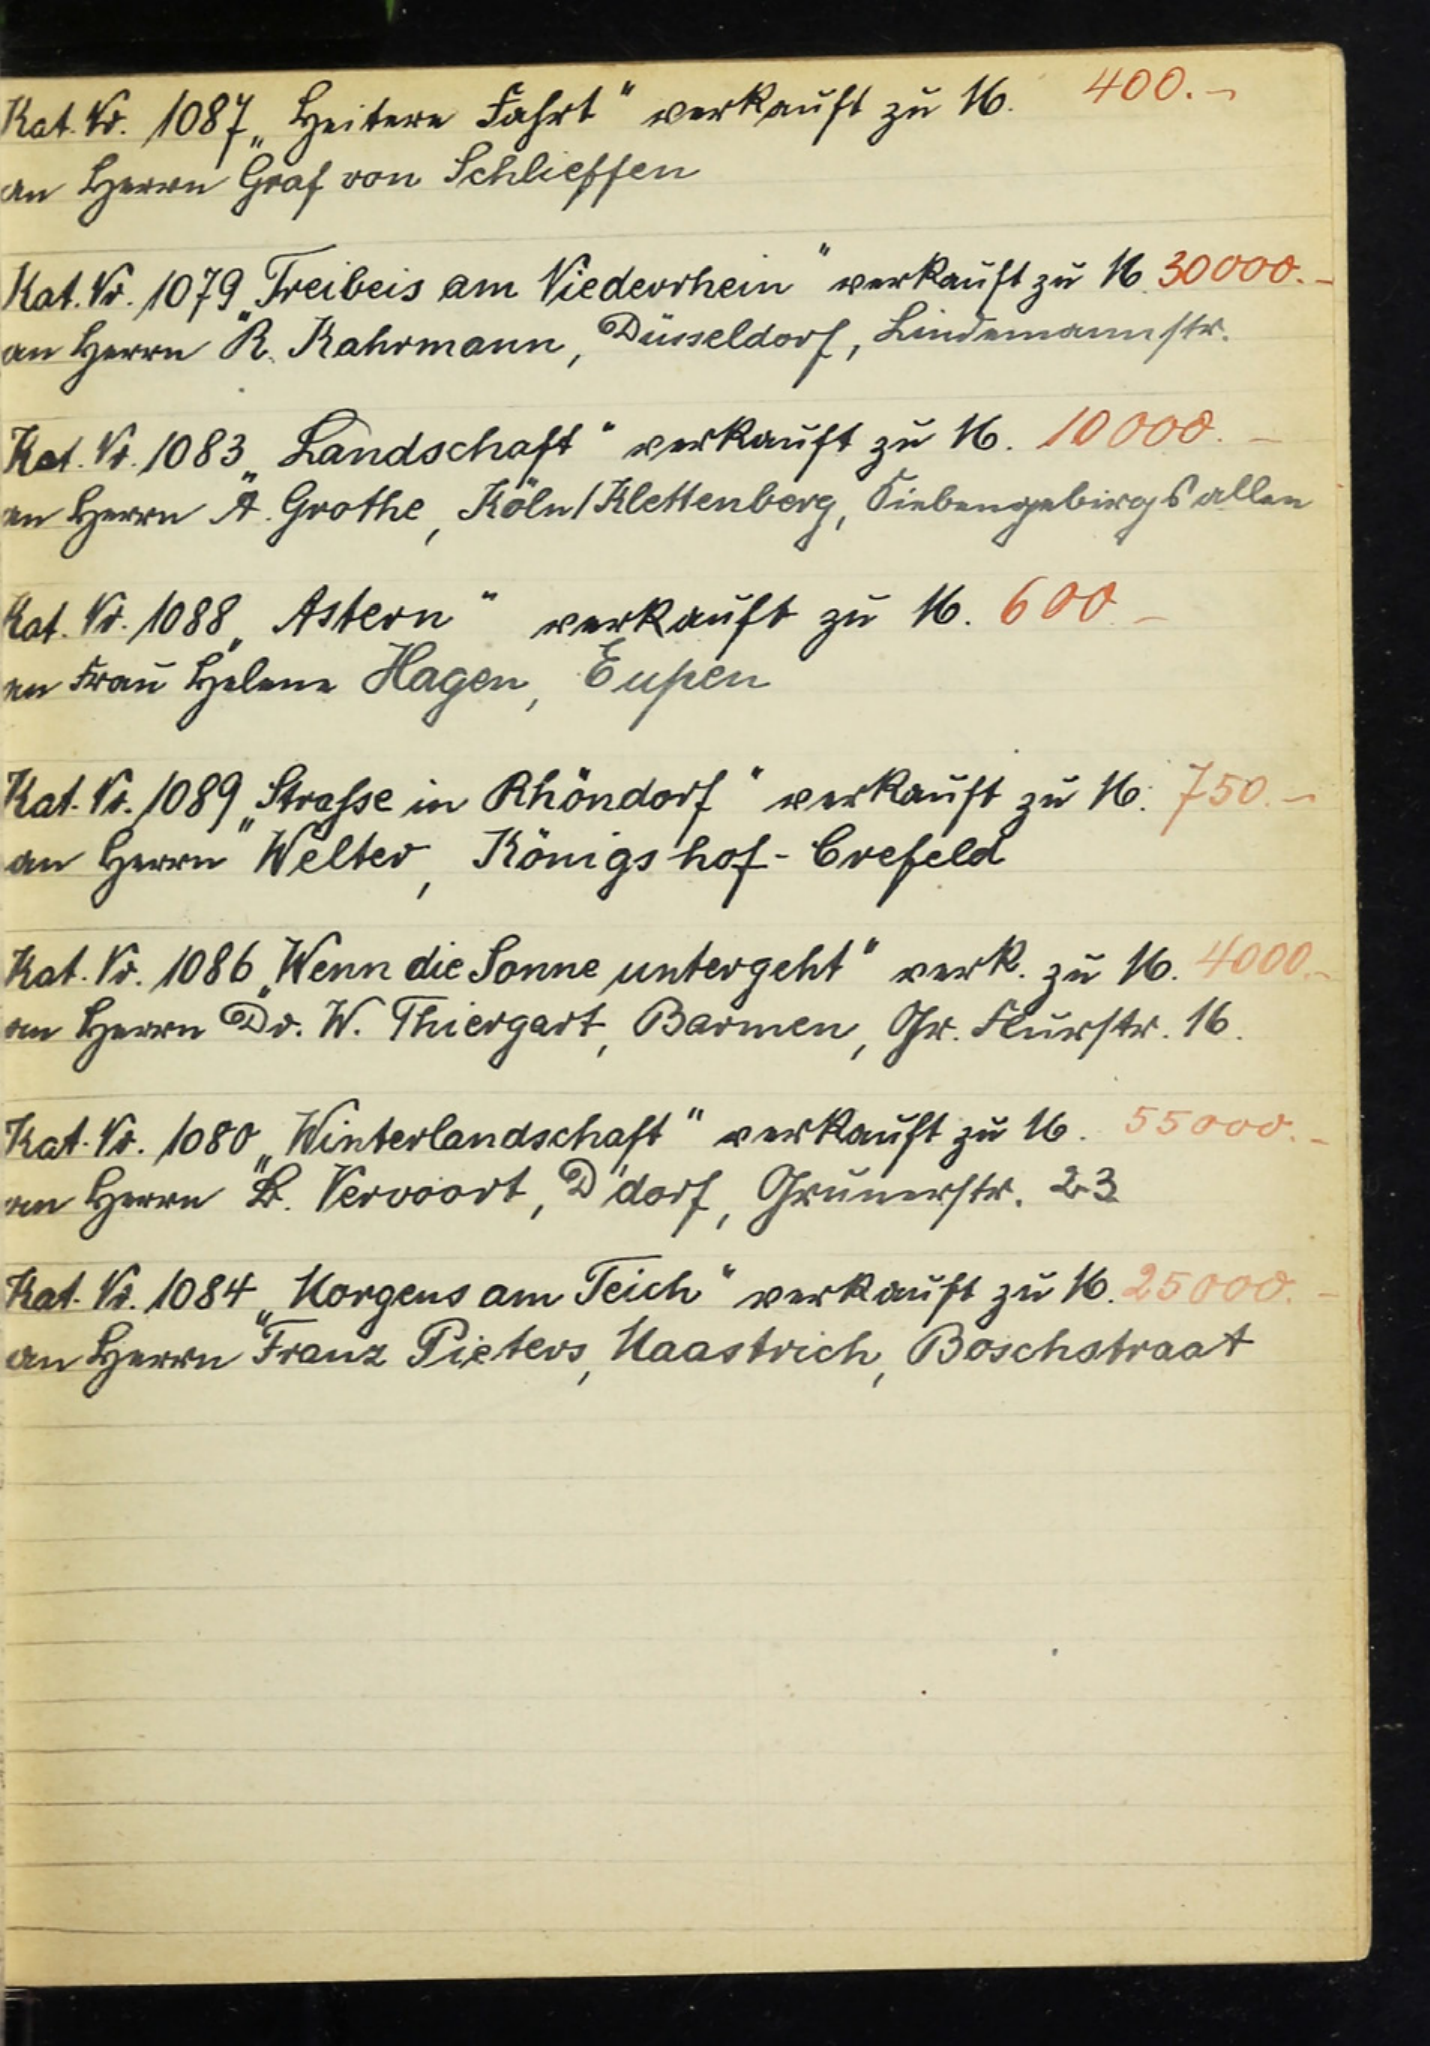 Kat. Nr. 1087 „Heitere Fahrt“ verkauft zu M. 400.–
an Herrn Graf von Schlieffen
Kat. Nr. 1079 „Treibeis am Niederrhein“ verkauft zu M. 30000.–
an Herrn R. Kahrmann, Düsseldorf, Lindemannstr.
Kat. Nr. 1083 „Landschaft“ verkauft zu M. 10000.–
an Herrn A. Grothe, Köln/Klettenberg, Siebengebirgsallee
Kat. Nr. 1088 „Astern“ verkauft zu M. 600.–
an Frau Helene Hagen, Eupen
Kat. Nr. 1089 „Strasse in Rhöndorf“ verkauft zu M. 750.–
an Herrn Welter, Königshof-Crefeld
Kat. Nr. 1086 „Wenn die Sonne untergeht“ verk. zu M. 4000.–
an Herrn Dr. W. Thiergart, Barmen, Gr. Flurstr. 16.
Kat. Nr. 1080 „Winterlandschaft“ verkauft zu M. 55000.–
an Herrn Vervoort, D'dorf, Grunerstr. 23
Kat. Nr. 1084 „Morgens am Teich“ verkauft zu M. 25000.–
an Herrn Franz Pieters, Maastrich, Boschstraat